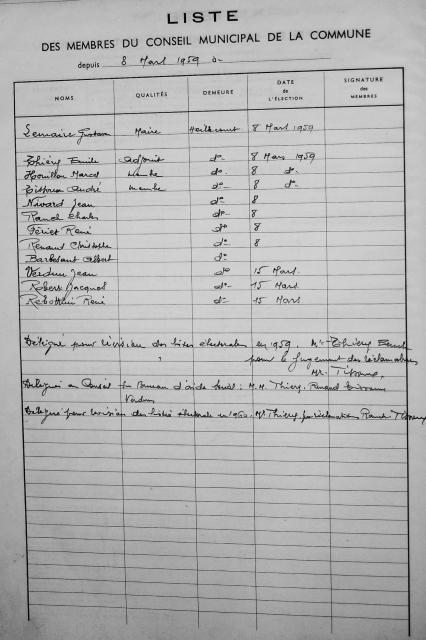 LISTE
DES MEMBRES DU CONSEIL MUNICIPAL DE LA COMMUNE
depuis 8 Mars 1959
NOMS QUALITÉS DEMEURE DATE de L'ÉLECTION SIGNATURE des MEMBRES
Lemaire Maire 8 Mars 1959
Thiéry Emile adjoint do- 8 Mars 1959
Houillon Marcel membre do- 8 do-
Tisserand André membre do- 8 do-
Nivard Jean do- 8
Ranch Charles do- 8
Fériet René do 8
Renaud Christophe do 8
Barbesant Albert do
Verdun Jean do 15 Mars
Robert Jacques do- 15 Mars
René do- 15 Mars
Délégué pour révision des listes électorales en 1959. Mr Thiery Emile
pour le jugement des réclamations
Mr.
Délégués au Conseil Bureau d'aide : M.M. Thiery. Renaud
Verdun
Délégué pour révision des listes électorales en 1960. Mr Thiery, Ranch